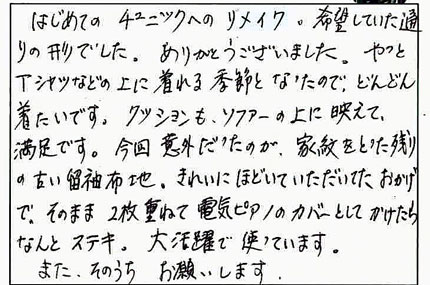 はじめての チュニックへの リメイク。希望していた通
りの形でした。ありがとうございました。やっと
Tシャツなどの上に着れる季節となったので、どんどん
着たいです。クッションも、ソファーの上に映えて、
満足です。今回意外だったのが、家紋をとった残り
の古い留袖布地。きれいにほどいていただいてた、おかげ
で、そのまま 2枚重ねて電気ピアノのカバーとしてかけたら
なんと ステキ。大活躍で使っています。
また、そのうち お願いします.